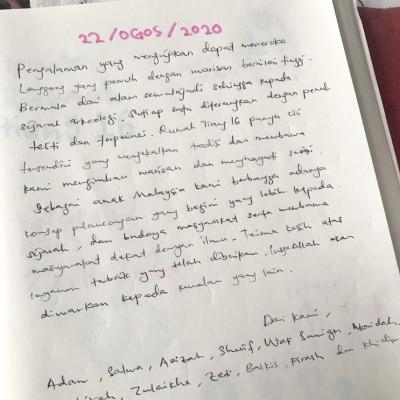 22/OGOS/2020
Pengalaman yang mengujakan dapat meneroka
Lenggong yang penuh dengan warisan bernilai tinggi.
Bermula dari alam semulajadi sehingga kepada
sejarah arkeologi. Setiap satu diterangkan dengan penuh
teliti dan terperinci. Rumah Tiang 16 punya ciri
tersendiri yang mengekalkan tradisi dan membawa
kami mengimbau warisan dan menghayati
Sebagai anak Malaysia kami berbangga adanya
konsep pelancongan yang begini yang lebih kepada
sejarah, dan budaya masyarakat serta membawa
masyarakat dekat dengan ilmu. Terima kasih atas
layanan terbaik yang telah diberikan. InsyaAllah akan
diwarkan kepada kenalan yang lain.
Dari kami,
Adam, Salwa, Azizah, Sherif, Wak
Zulaikha, Zeti, Balkis, dan